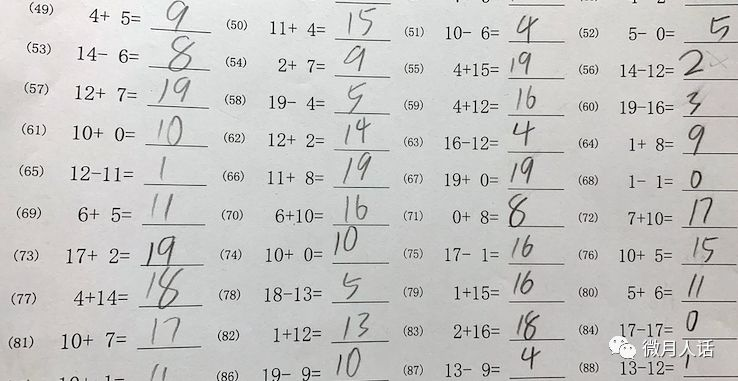 (49) 4+ 5= 9 (50) 11+ 4= 15 (51) 10- 6= 4 (52) 5- 0= 5
(53) 14- 6= 8 (54) 2+ 7= 9 (55) 4+15= 19 (56) 14-12= 2
(57) 12+ 7= 19 (58) 19- 4= 5 (59) 4+12= 16 (60) 19-16= 3
(61) 10+ 0= 10 (62) 12+ 2= 14 (63) 16-12= 4 (64) 1+ 8= 9
(65) 12-11= 1 (66) 11+ 8= 19 (67) 19+ 0= 19 (68) 1- 1= 0
(69) 6+ 5= 11 (70) 6+10= 16 (71) 0+ 8= 8 (72) 7+10= 17
(73) 17+ 2= 19 (74) 10+ 0= 10 (75) 17- 1= 16 (76) 10+ 5= 15
(77) 4+14= 18 (78) 18-13= 5 (79) 1+15= 16 (80) 5+ 6= 11
(81) 10+ 7= 17 (82) 1+12= 13 (83) 2+16= 18 (84) 17-17= 0
11 (86) 19- 9= 10 (87) 13- 9= 4 (88) 13-12= 1
微月人话